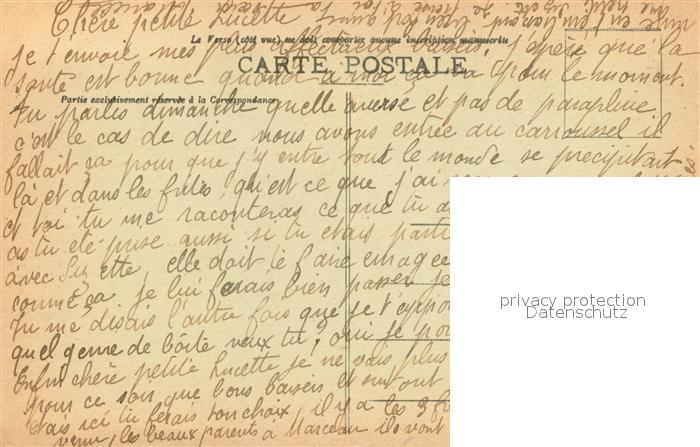 Chère petite Lucette
Le Verso (côté vue) ne doit comporter aucune inscription manuscrite
je t'envoie mes plus affectueux baisers, j'espère que ta
CARTE POSTALE
santé est bonne quand à moi ça va pour le moment.
Partie exclusivement réservée à la Correspondance
Tu parles dimanche quelle averse et pas de parapluie
c'est le cas de dire nous avons entrée au carrousel il
fallait ça pour que j'y entre tout le monde se précipitait
là, et dans les fritès, qu'est ce que j'ai
et toi tu me raconteras ce que tu a
as tu été prise aussi si tu étais parti
avec Suzette, elle doit le faire enragée
comme ça. je lui ferais bien passer
Tu me disais l'autre fois que je t'expo
quel genre de boîte veux tu? oui je pou
Enfin chère petite Lucette je ne vais plus
pour ce soir, que bons baisers et surtout
étais ici tu ferais ton choix, il y a les 3
venu, les beaux parents à Marceau ils vont
privacy protection
Datenschutz